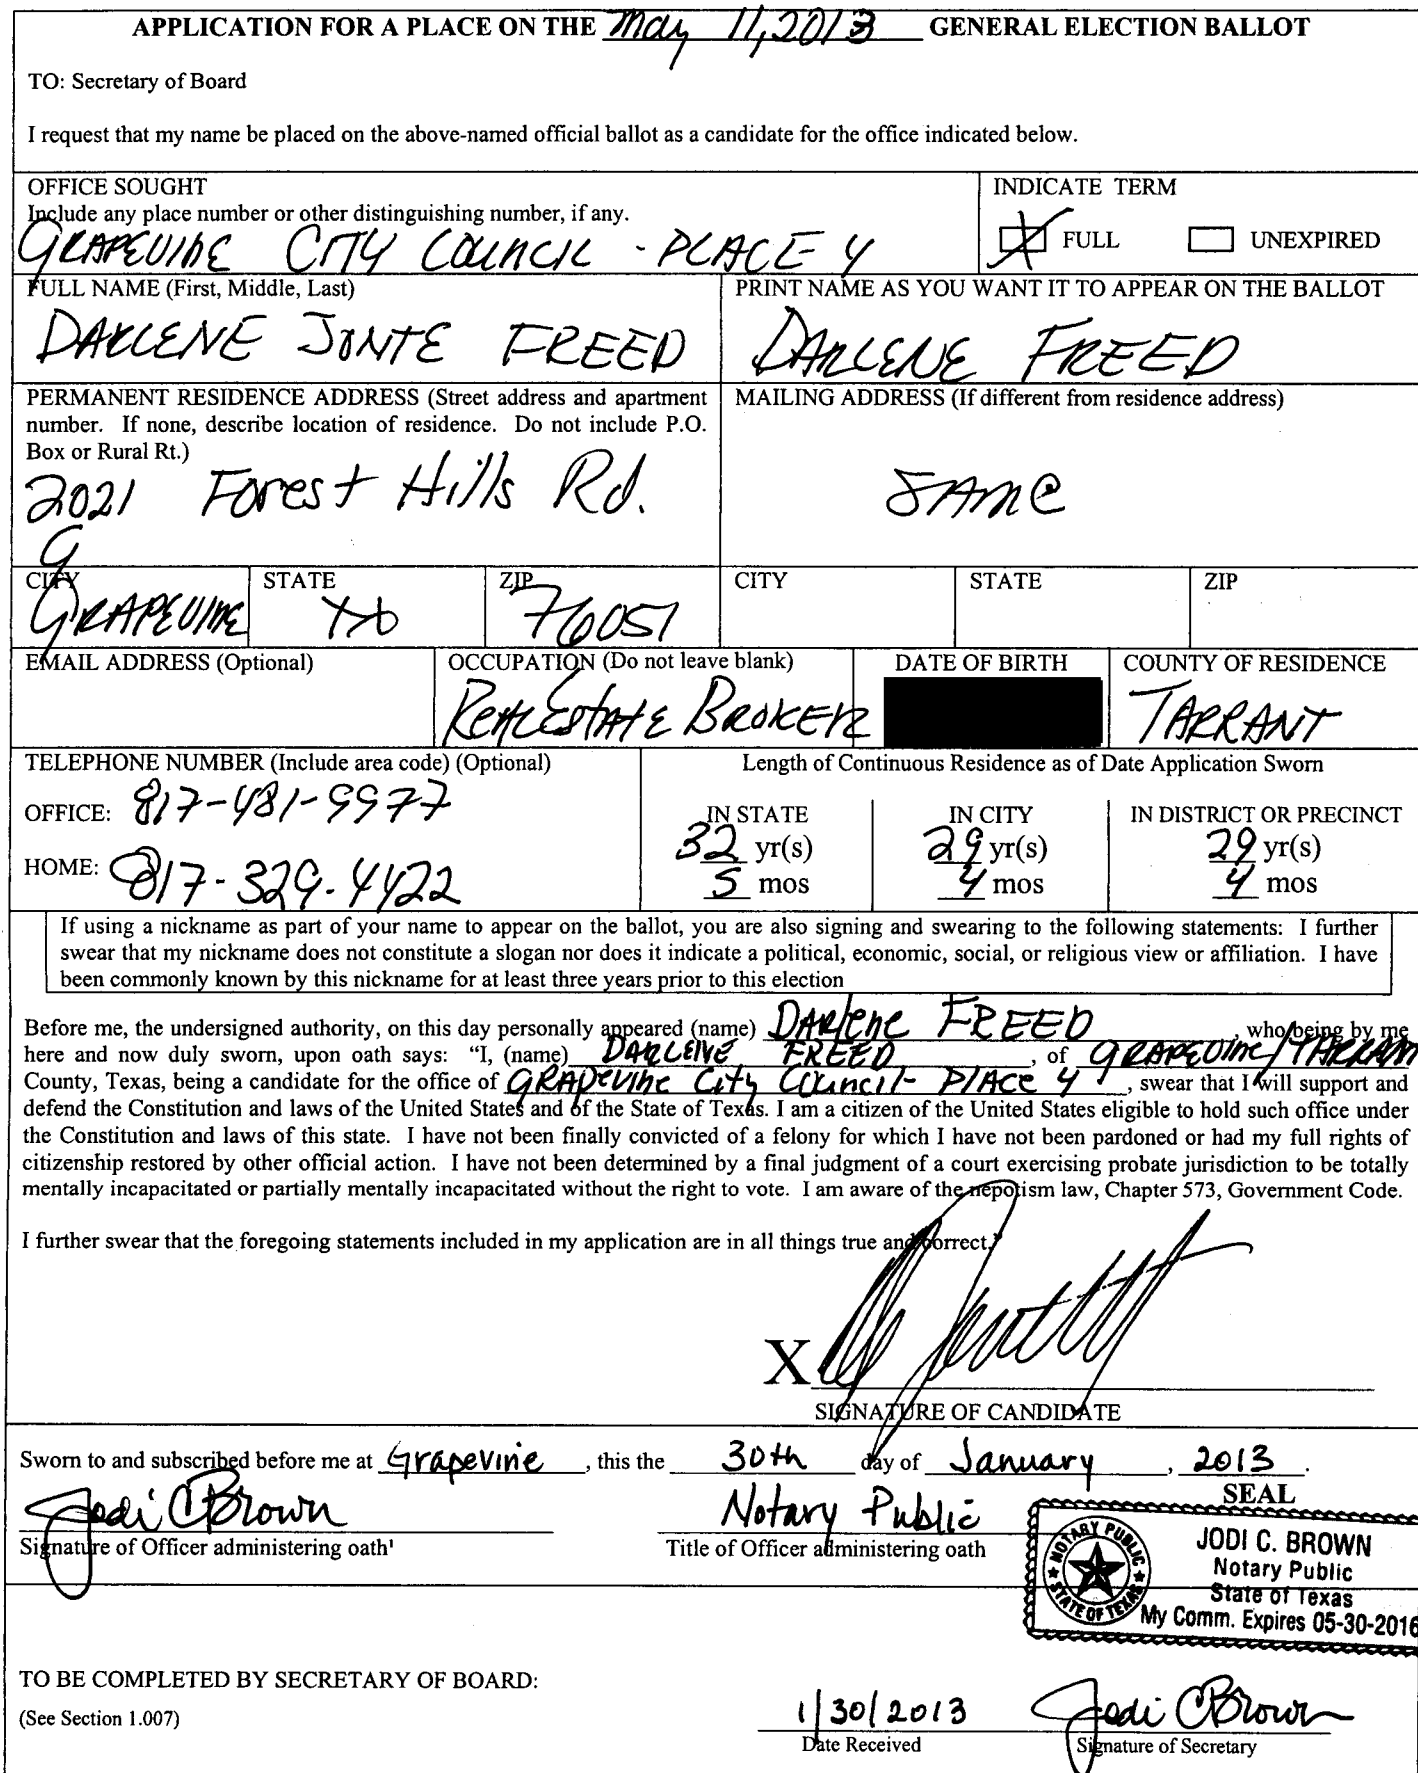 APPLICATION FOR A PLACE ON THE May 11, 2013 GENERAL ELECTION BALLOT
TO: Secretary of Board
I request that my name be placed on the above-named official ballot as a candidate for the office indicated below.
OFFICE SOUGHT
Include any place number or other distinguishing number, if any.
GRAPEVINE CITY COUNCIL - PLACE 4
INDICATE TERM
X FULL UNEXPIRED
FULL NAME (First, Middle, Last)
DARLENE JONTE FREED
PRINT NAME AS YOU WANT IT TO APPEAR ON THE BALLOT
DARLENE FREED
PERMANENT RESIDENCE ADDRESS (Street address and apartment
number. If none, describe location of residence. Do not include P.O.
Box or Rural Rt.)
2021 Forest Hills Rd.
G
MAILING ADDRESS (If different from residence address)
SAME
CITY STATE ZIP CITY STATE ZIP
GRAPEVINE TX 76051
EMAIL ADDRESS (Optional)
OCCUPATION (Do not leave blank)
REAL ESTATE BROKER
DATE OF BIRTH
COUNTY OF RESIDENCE
TARRANT
TELEPHONE NUMBER (Include area code) (Optional)
OFFICE: 817-481-9977
HOME: 817-329-4422
Length of Continuous Residence as of Date Application Sworn
IN STATE IN CITY IN DISTRICT OR PRECINCT
32 yr(s) 29 yr(s) 29 yr(s)
5 mos 4 mos 4 mos
If using a nickname as part of your name to appear on the ballot, you are also signing and swearing to the following statements: I further
swear that my nickname does not constitute a slogan nor does it indicate a political, economic, social, or religious view or affiliation. I have
been commonly known by this nickname for at least three years prior to this election
Before me, the undersigned authority, on this day personally appeared (name) Darlene FREED, who being by me
here and now duly sworn, upon oath says: "I, (name) DARLENE FREED, of GRAPEVINE/TARRANT
County, Texas, being a candidate for the office of GRAPEVINE City Council- PlACE 4, swear that I will support and
defend the Constitution and laws of the United States and of the State of Texas. I am a citizen of the United States eligible to hold such office under
the Constitution and laws of this state. I have not been finally convicted of a felony for which I have not been pardoned or had my full rights of
citizenship restored by other official action. I have not been determined by a final judgment of a court exercising probate jurisdiction to be totally
mentally incapacitated or partially mentally incapacitated without the right to vote. I am aware of the nepotism law, Chapter 573, Government Code.
I further swear that the foregoing statements included in my application are in all things true and correct."
X
SIGNATURE OF CANDIDATE
Sworn to and subscribed before me at Grapevine, this the 30th day of January, 2013.
SEAL
Jodi C Brown
Notary Public
Signature of Officer administering oath
Title of Officer administering oath
NOTARY PUBLIC
STATE OF TEXAS
JODI C. BROWN
Notary Public
State of Texas
My Comm. Expires 05-30-2016
TO BE COMPLETED BY SECRETARY OF BOARD:
(See Section 1.007)
1/30/2013
Jodi C Brown
Date Received
Signature of Secretary